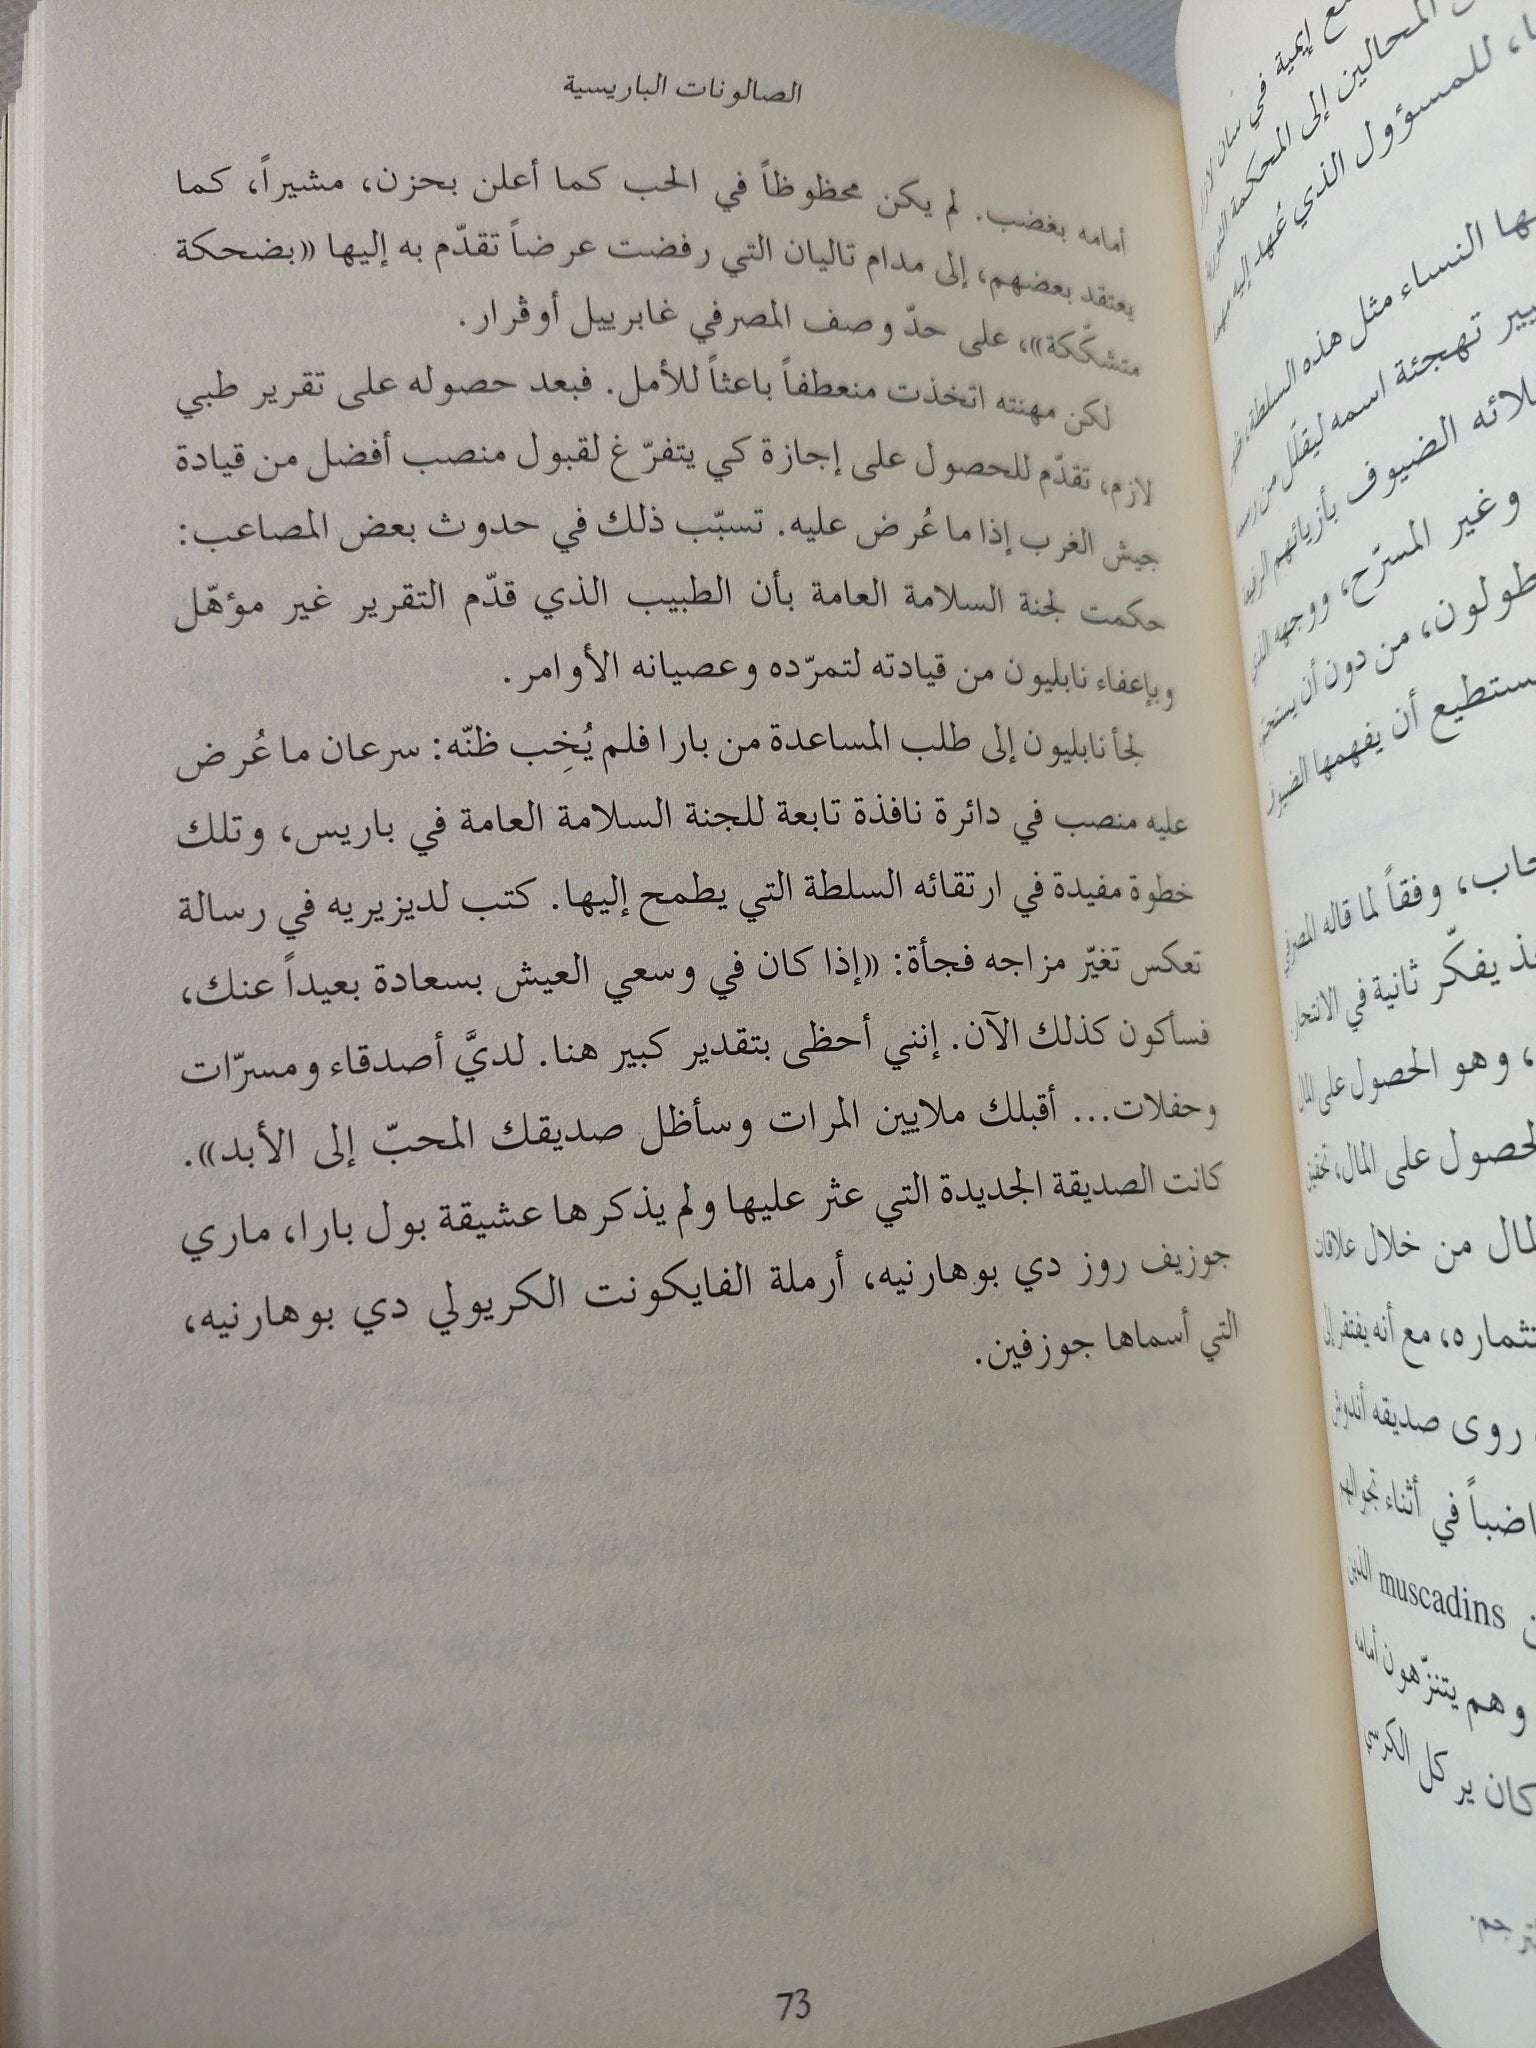 الصالونات الباريسية
أمامه بغضب. لم يكن محظوظاً في الحب كما أعلن بحزن، مشيراً، كما
يعتقد بعضهم، إلى مدام تاليان التي رفضت عرضاً تقدّم به إليها «بضحكة
متشكّكة»، على حدّ وصف المصرفي غابرييل أوڤرار.
لكن مهنته اتخذت منعطفاً باعثاً للأمل. فبعد حصوله على تقرير طبي
لازم، تقدّم للحصول على إجازة كي يتفرّغ لقبول منصب أفضل من قيادة
جيش الغرب إذا ما عُرض عليه. تسبّب ذلك في حدوث بعض المصاعب:
حكمت لجنة السلامة العامة بأن الطبيب الذي قدّم التقرير غير مؤهّل
وبإعفاء نابليون من قيادته لتمرّده وعصيانه الأوامر.
لجأ نابليون إلى طلب المساعدة من بارا فلم يُخِب ظنّه: سرعان ما عُرض
عليه منصب في دائرة نافذة تابعة للجنة السلامة العامة في باريس، وتلك
خطوة مفيدة في ارتقائه السلطة التي يطمح إليها. كتب لديزيريه في رسالة
تعكس تغيّر مزاجه فجأة: «إذا كان في وسعي العيش بسعادة بعيداً عنك،
فسأكون كذلك الآن. إنني أحظى بتقدير كبير هنا. لديَّ أصدقاء ومسرّات
وحفلات... أقبلك ملايين المرات وسأظل صديقك المحبّ إلى الأبد».
كانت الصديقة الجديدة التي عثر عليها ولم يذكرها عشيقة بول بارا، ماري
جوزيف روز دي بوهارنيه، أرملة الفايكونت الكريولي دي بوهارنيه،
التي أسماها جوزفين.
73
إيمية في سان لازار
المحالين إلى المحكمة الثورية
للمسؤول الذي عُهد إليه
النساء مثل هذه السلطة،
تهجئة اسمه ليقلّل من
الضيوف بأزيائهم
وغير المسرّح، ووجهه
طولون، من دون أن
أن يفهمها الضيوف
وفقاً لما قاله المصرفي
يفكّر ثانية في الانتحار
، وهو الحصول على المال
على المال،
من خلال علاقات
مع أنه يفتقر إلى
روى صديقه أندوش
في أثناء تجوالهم
muscadins الذين
وهم يتنزّهون أمامه
كان يركل الكرسي